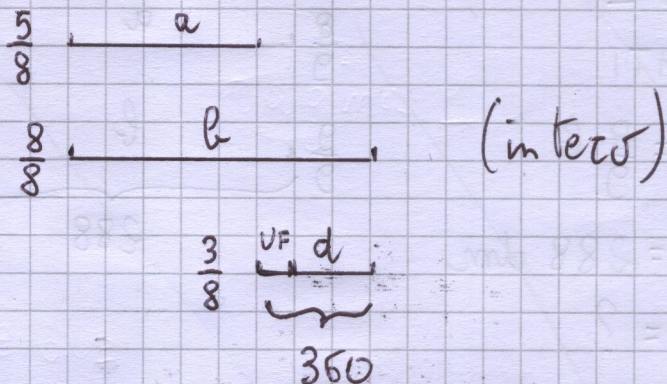 5/8 a
8/8 b (intero)
3/8 UF d
360